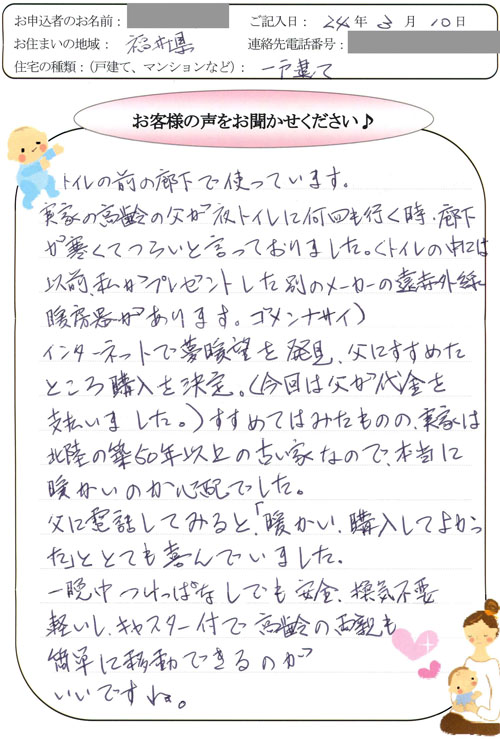 お申込者のお名前： ご記入日： 24 年 3 月 10 日
お住まいの地域： 福井県 連絡先電話番号：
住宅の種類：（戸建て、マンションなど）： 一戸建て
お客様の声をお聞かせください♪
トイレの前の廊下で使っています。
実家の高齢の父が夜トイレに何回も行く時、廊下
が寒くてつらいと言っておりました。（トイレの中には
以前、私がプレゼントした別のメーカーの遠赤外線
暖房器があります。ゴメンナサイ）
インターネットで夢暖望を発見、父にすすめた
ところ購入を決定。（今回は父が代金を
支払いました。）すすめてはみたものの、実家は
北陸の築60年以上の古い家なので、本当に
暖かいのか心配でした。
父に電話してみると、「暖かい、購入してよかっ
た」ととても喜んでいました。
一晩中つけっぱなしでも安全、換気不要
軽いし、キャスター付で高齢の両親も
簡単に移動できるのが
いいですね。